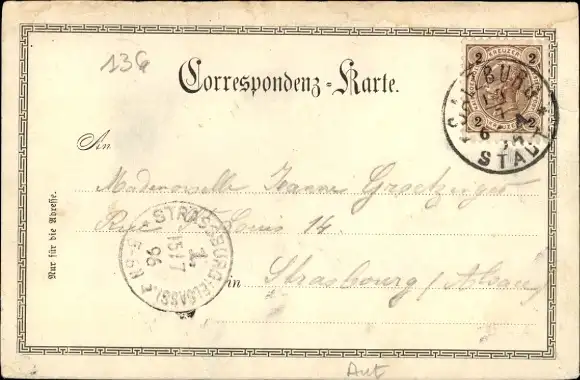 136
Correspondenz-Karte.
2 KREUZER 2
2 KREUZER 2
SALZBURG
STADT
An
Mademoiselle Jeanne Groetzinger
Rue St Louis 14.
in Strasbourg (Alsace)
STRASSBURG (ELSASS)
15/7
96
Nur für die Adresse.
Aut